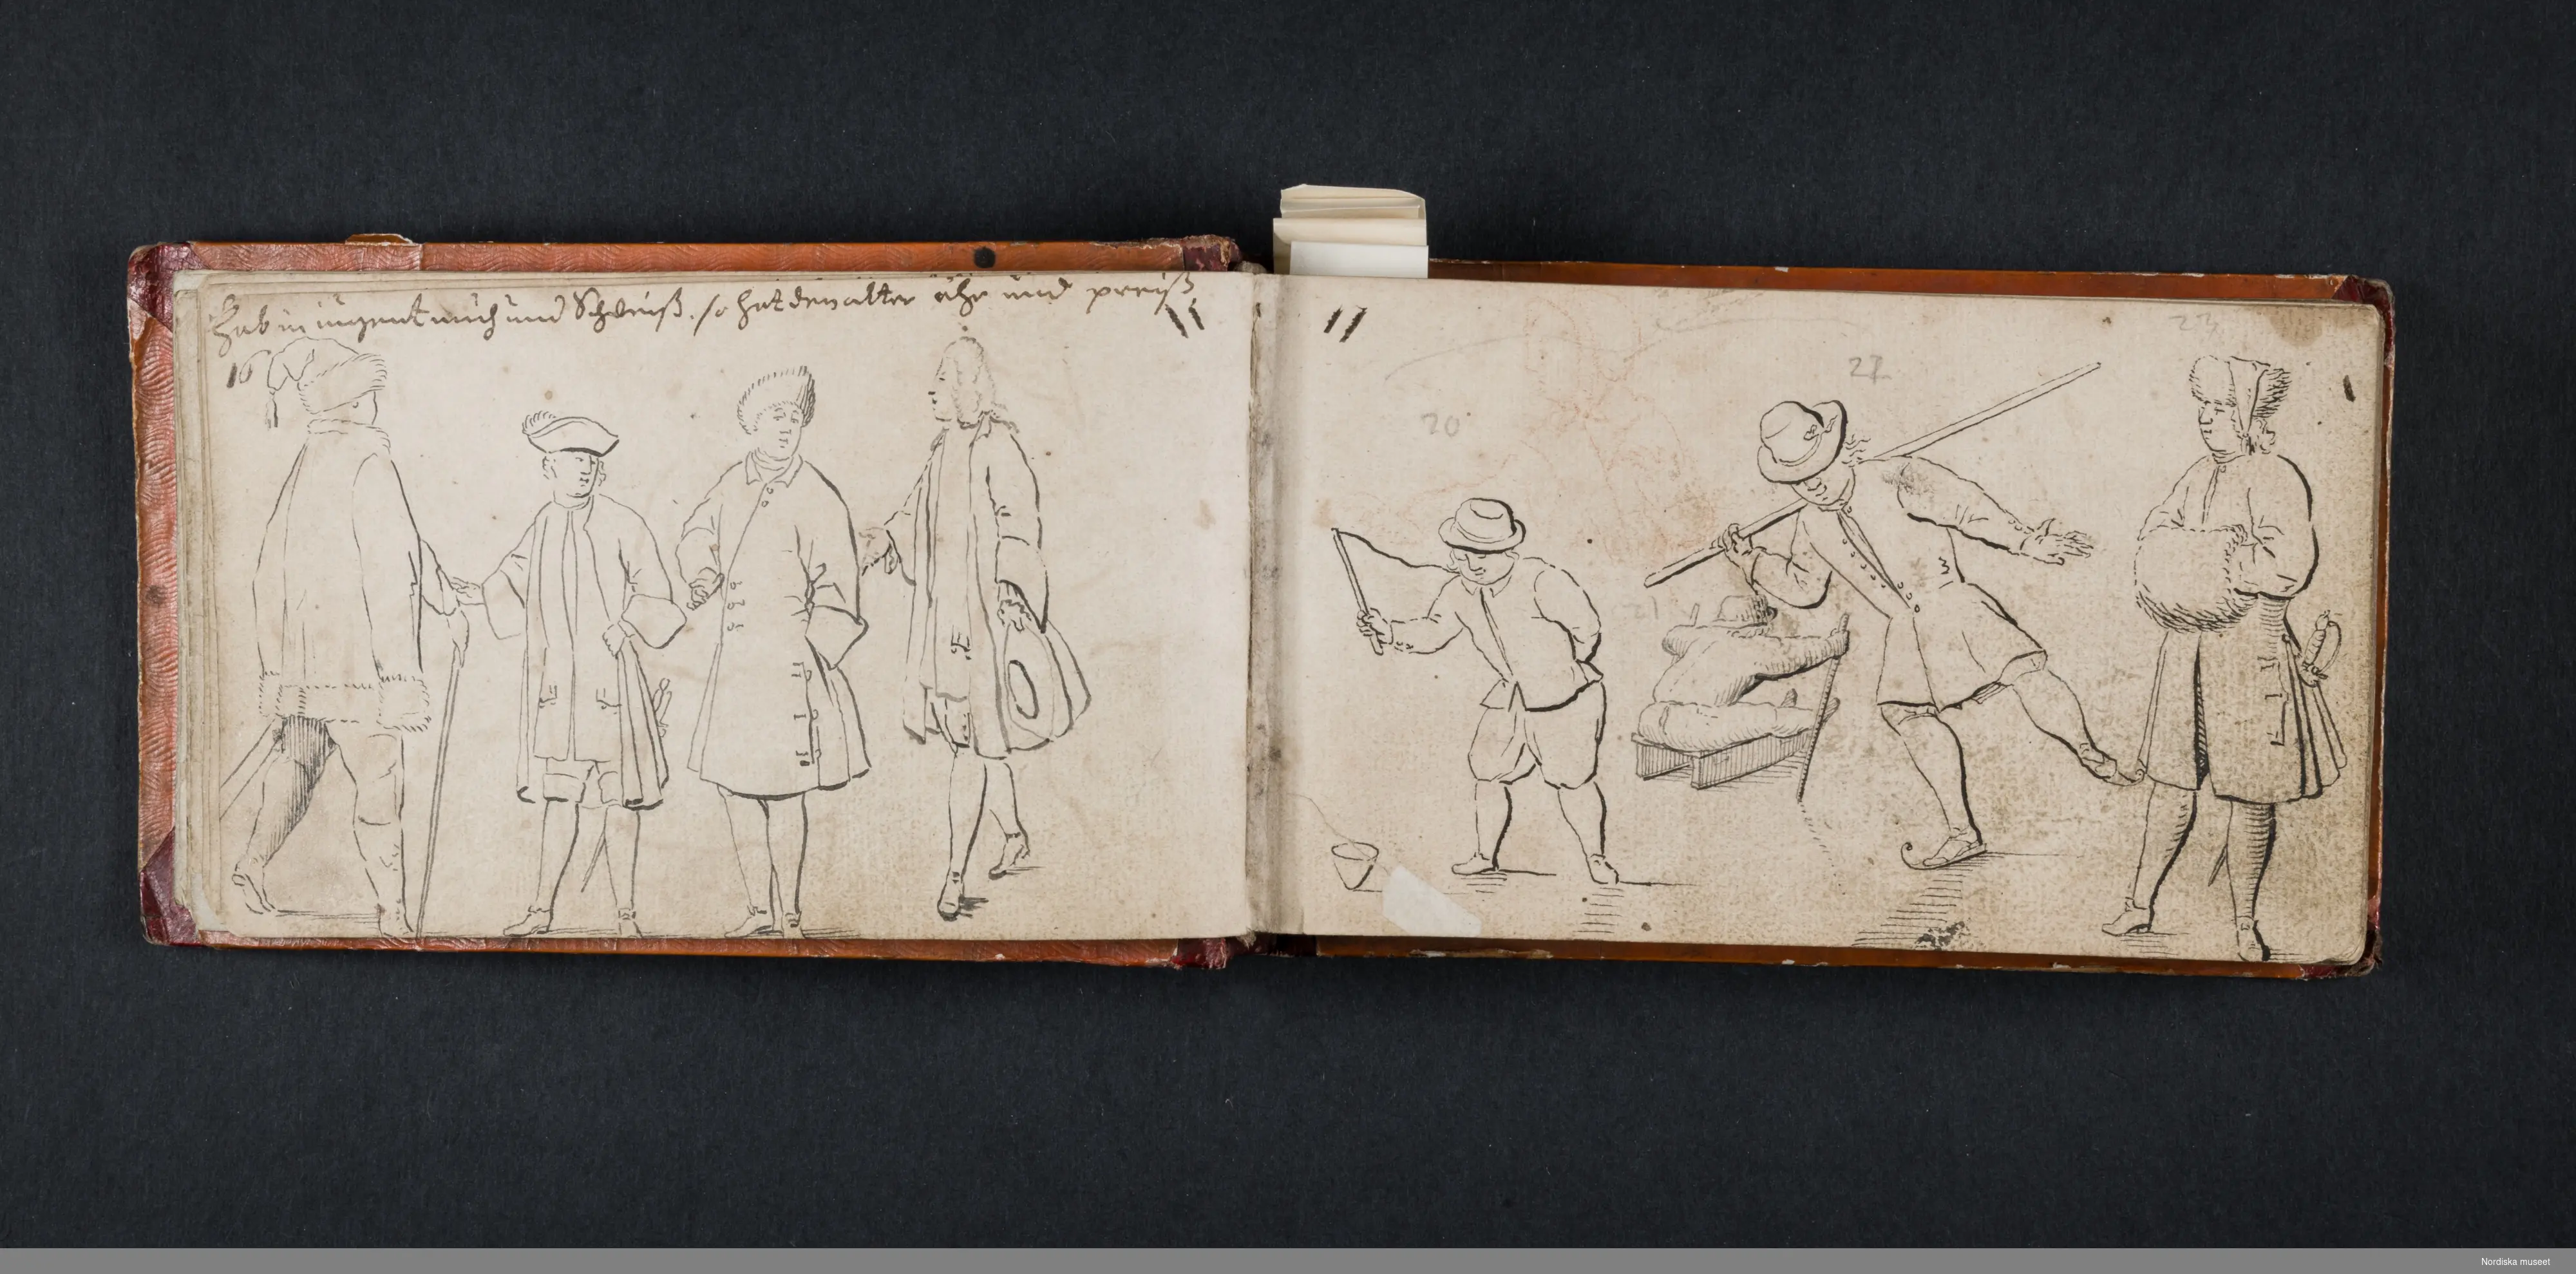 Hab in iugent müh und Schweiß. so hat den alter ehr und preiß
16
11
11
20
22
23
21
Nordiska museet